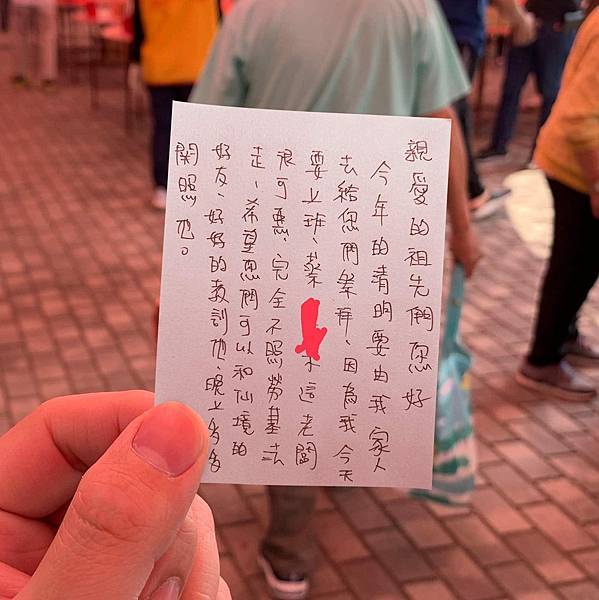 親愛的祖先們您好
今年的清明要由我家人
去給您們祭拜、因為我今天
要上班、蔡 這老闆
很可惡、完全不照勞基法
走、希望您們可以和仙境的
好友、好好的教訓他、晚上多多
關照他。